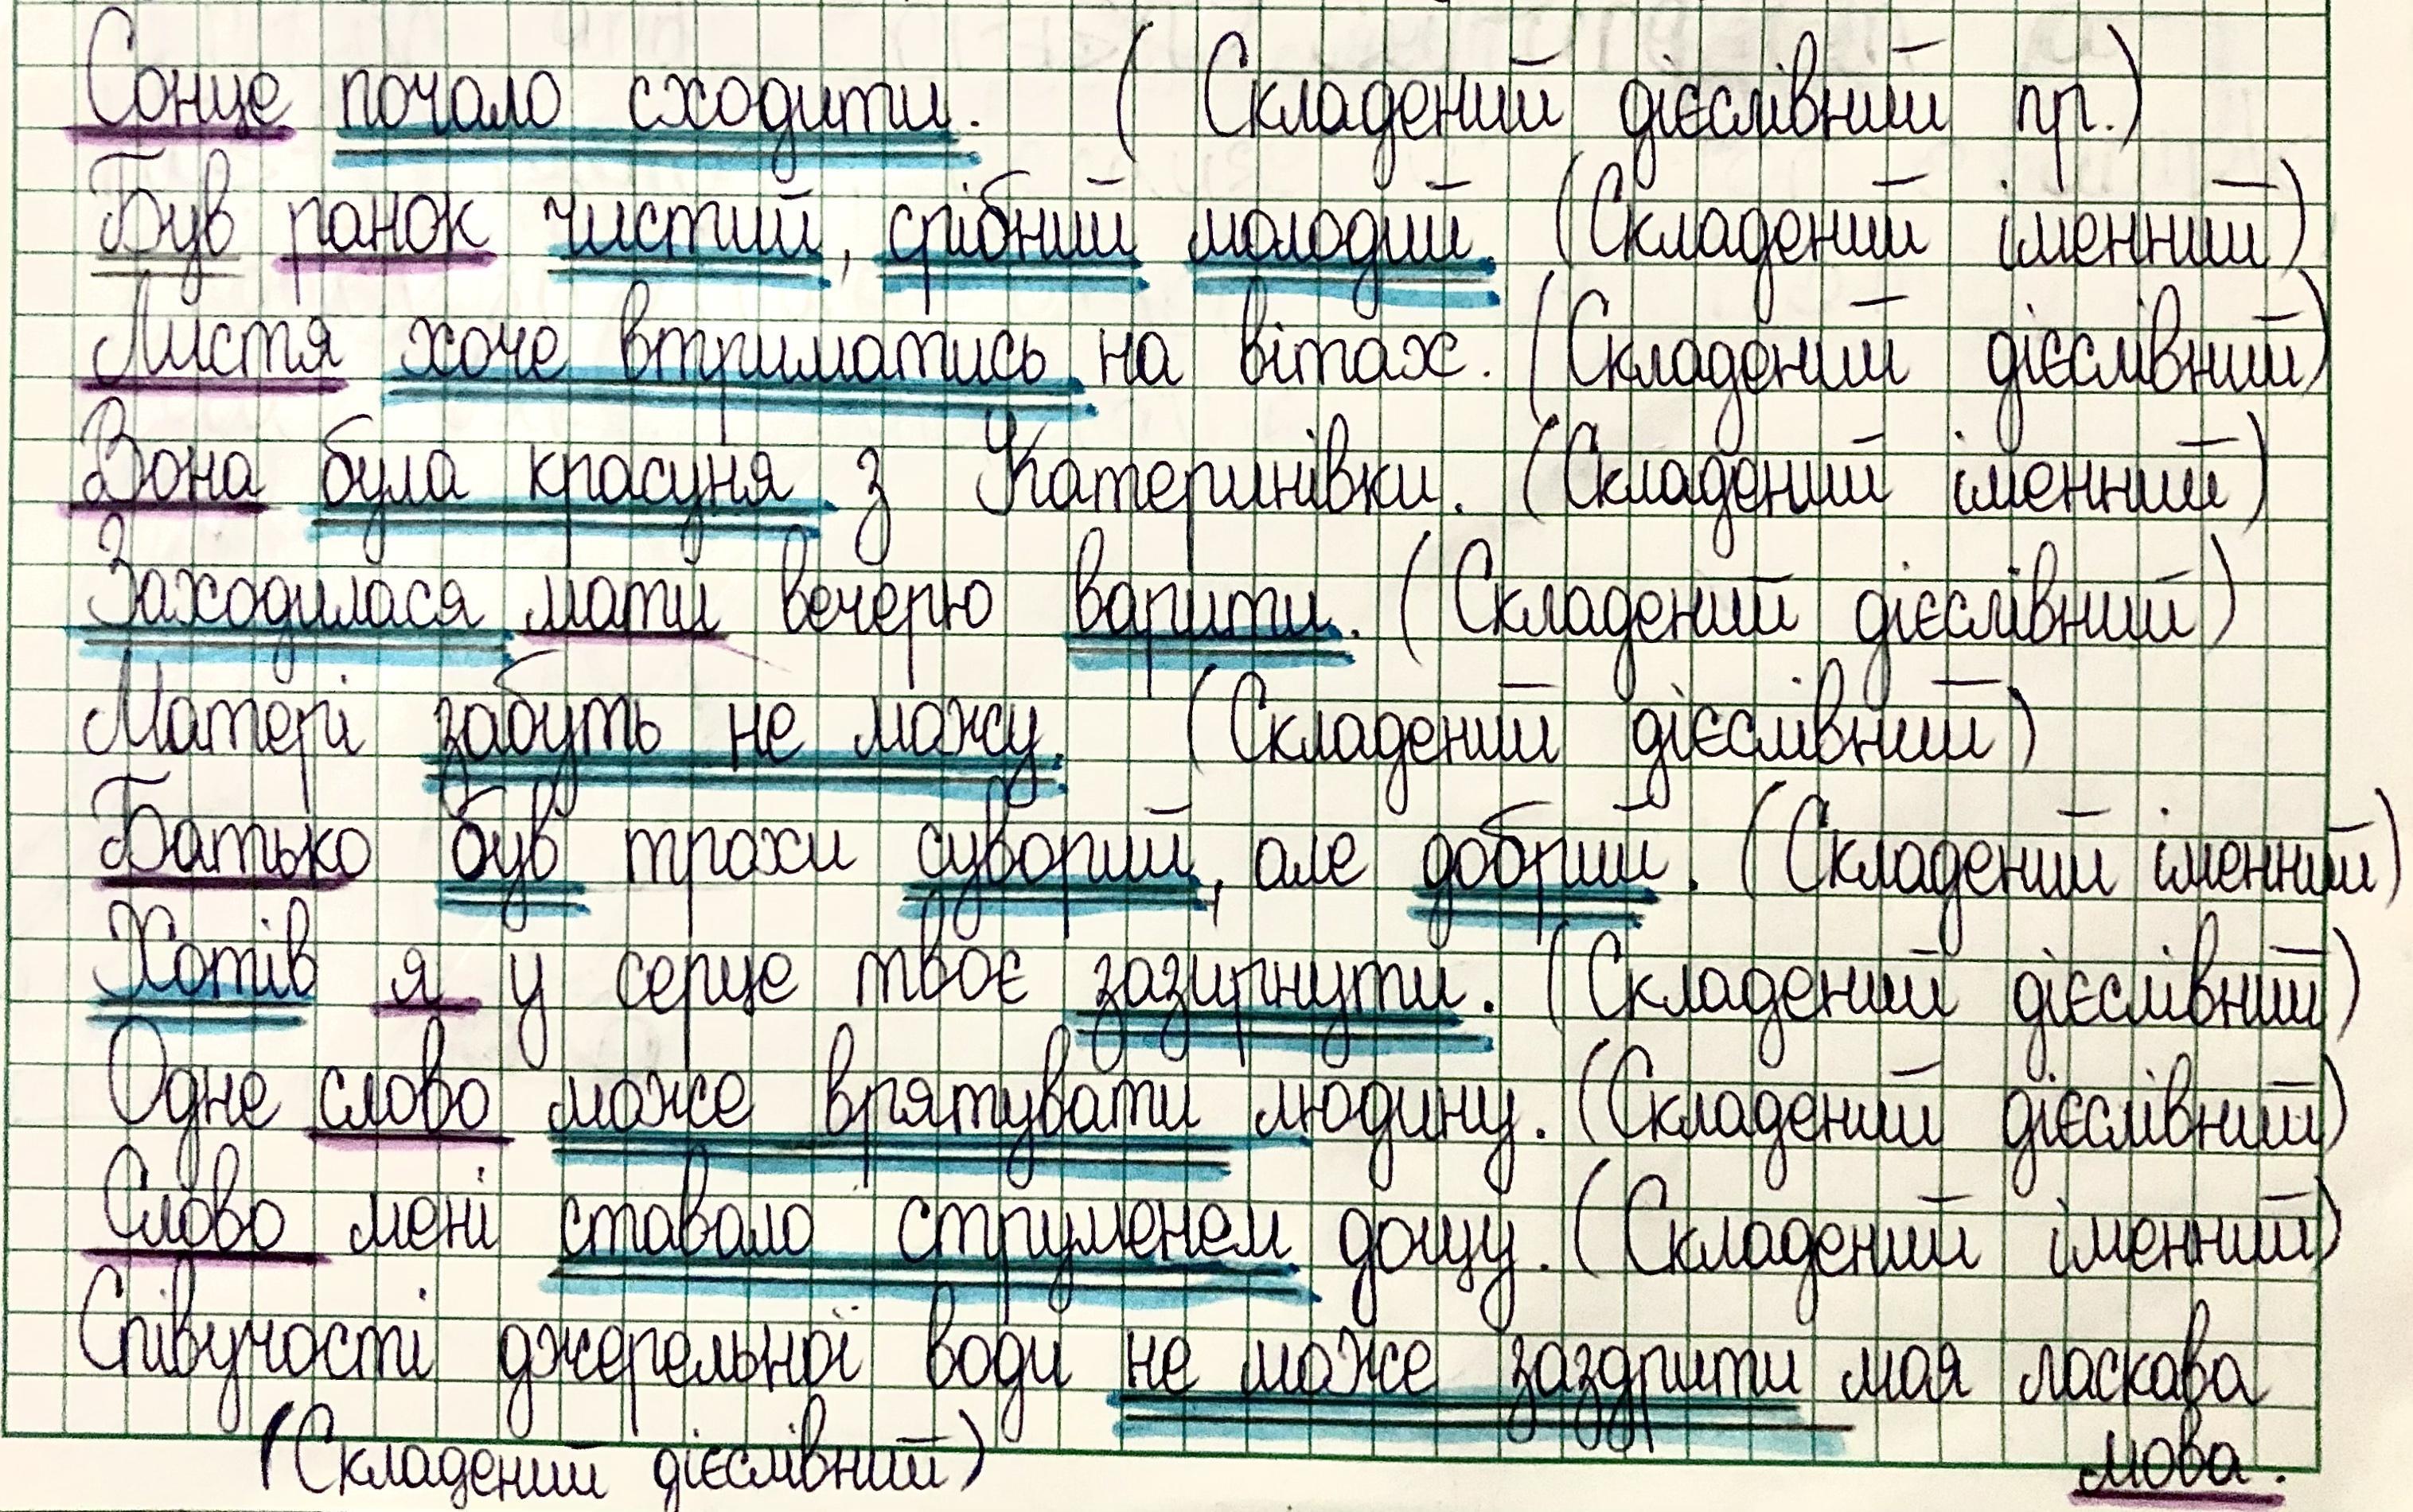 Сонце почало сходити. (Складений дієслівний пр.)
Був ранок чистий, срібний молодий. (Складений іменний)
Листя хоче втриматись на вітах. (Складений дієслівний)
Вона була красуня з Катеринівки. (Складений іменний)
Заходилася мати вечерю варити. (Складений дієслівний)
Матері забуть не можу. (Складений дієслівний)
Батько був трохи суворий, але добрий. (Складений іменний)
Хотів я у серце твоє зазирнути. (Складений дієслівний)
Одне слово може врятувати людину. (Складений дієслівний)
Слово мені ставало струменем дощу. (Складений іменний)
Співучості джерельної води не може заздрити моя ласкава
(Складений дієслівний) мова.